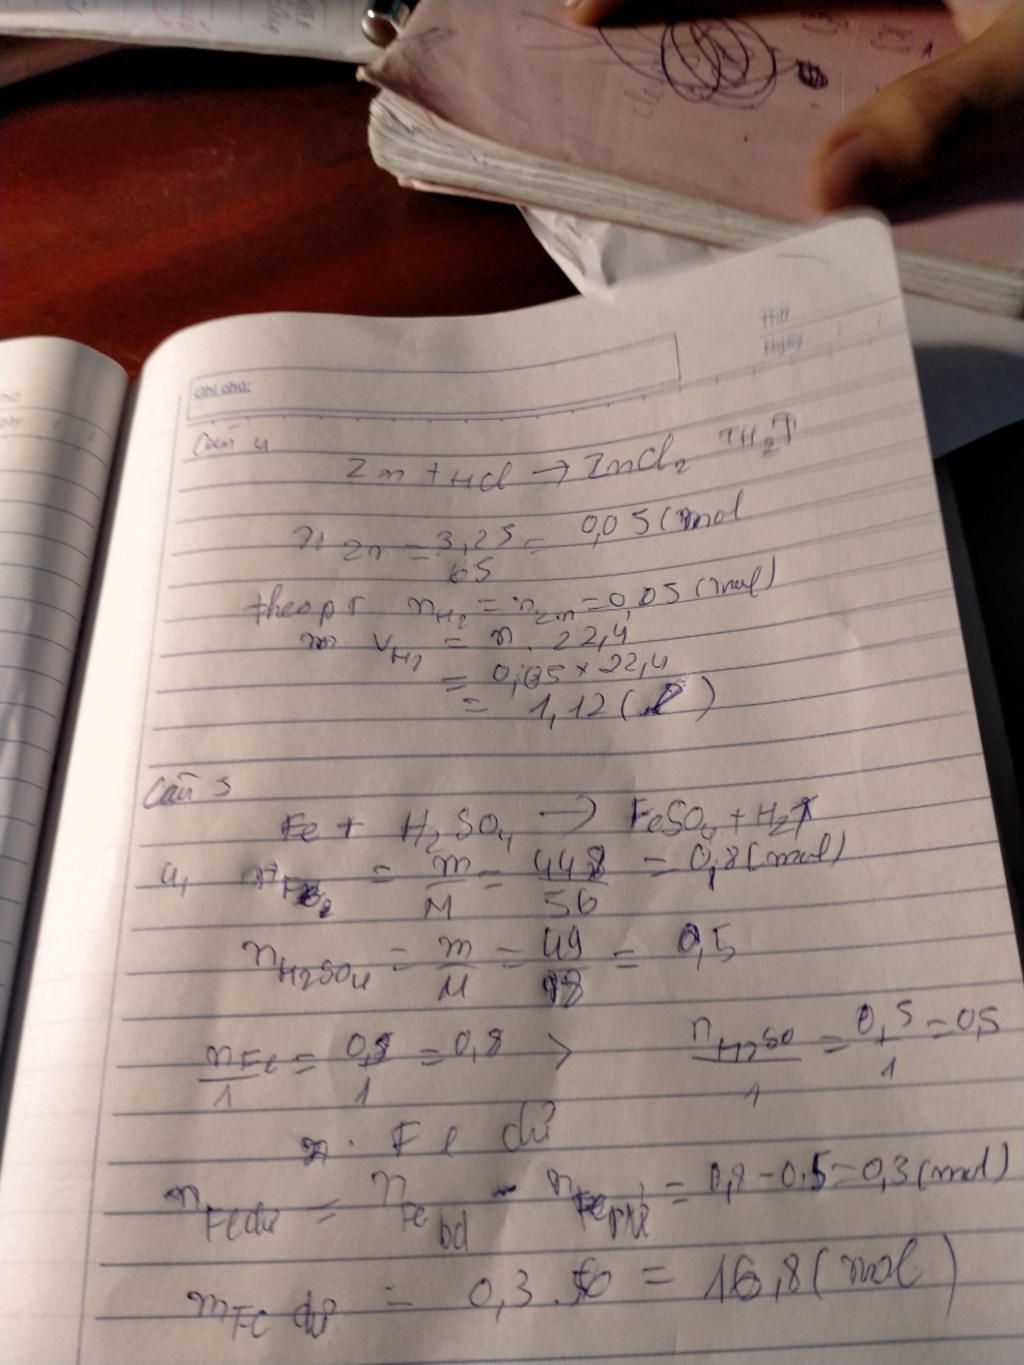 Ghi chú:
Thứ
Ngày
Câu 4
Zn + HCl → ZnCl2 + H2↑
n Zn = 3,25/65 = 0,05 (mol
theo pt nH2 = nZn = 0,05 (mol)
VH2 = n . 22,4
= 0,05 × 22,4
= 1,12 (l)
Câu 5
Fe + H2SO4 → FeSO4 + H2↑
a, nFe = m/M = 448/56 = 0,8 (mol)
nH2SO4 = m/M = 49/98 = 0,5
nFe/1 = 0,8/1 = 0,8 > nH2SO/1 = 0,5/1 = 0,5
Fe dư
nFe dư = nFe bđ - nFe pư = 0,8 - 0,5 = 0,3 (mol)
mFe dư = 0,3 . 56 = 16,8 (mol)